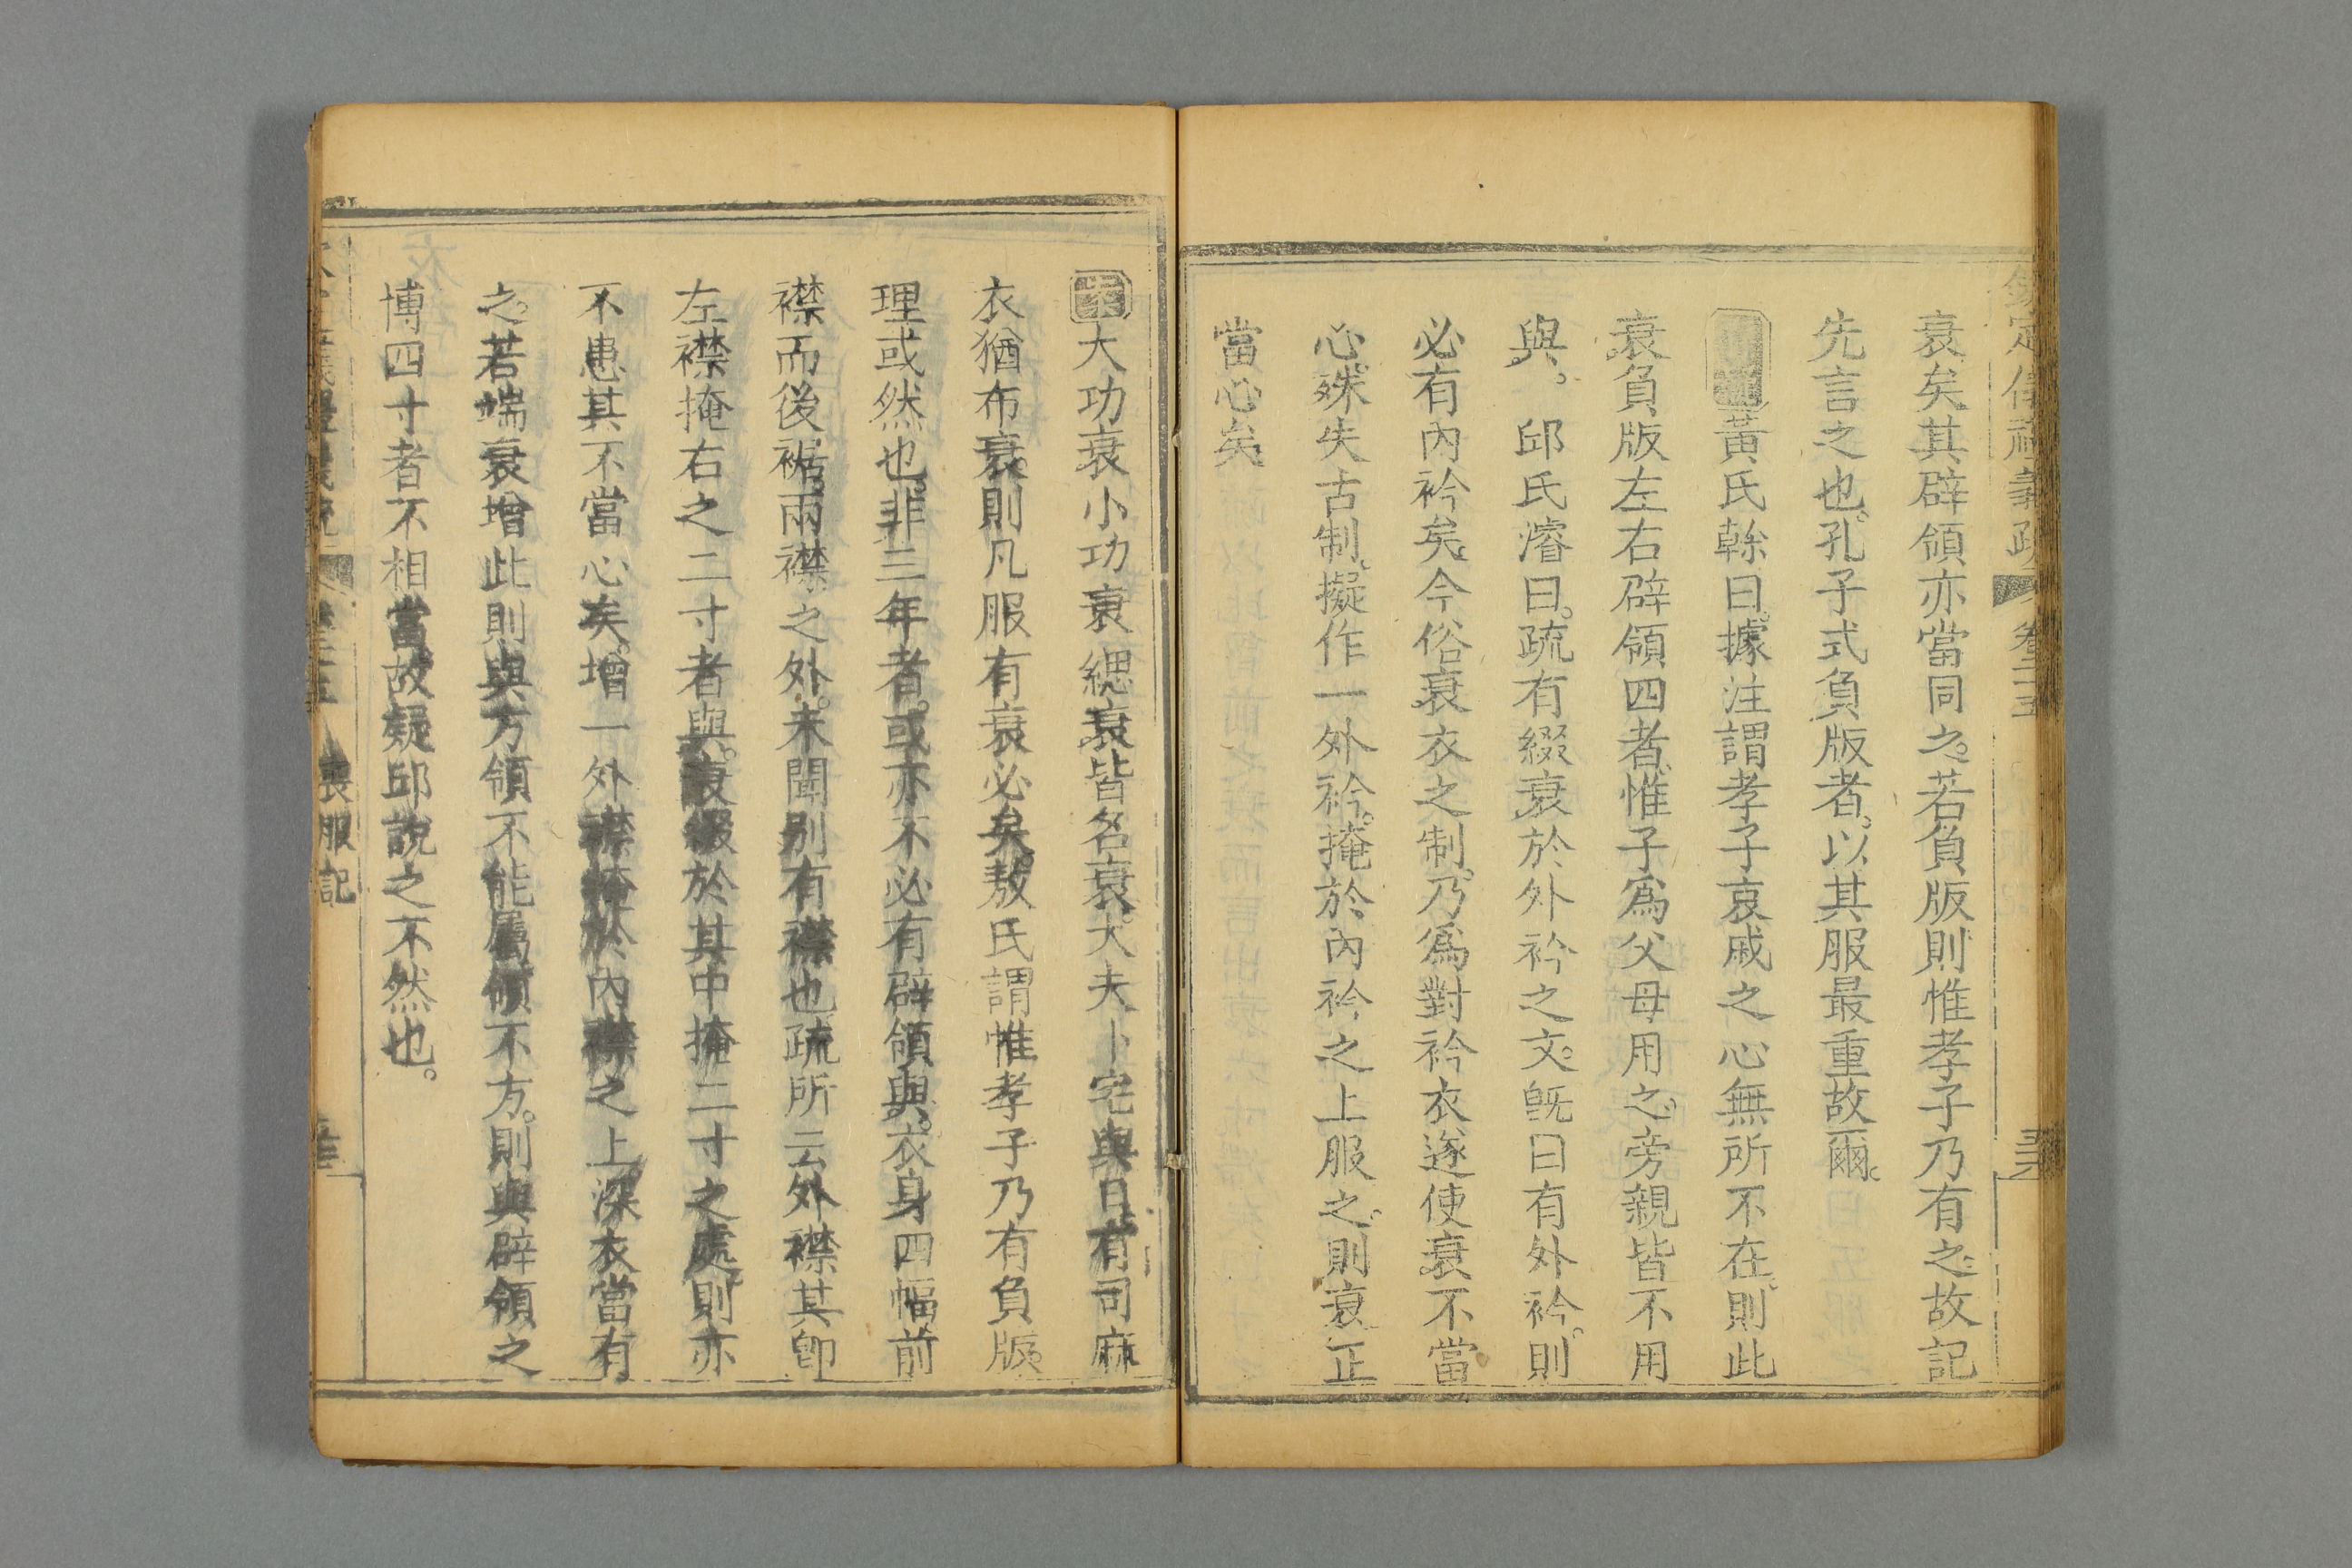 衰矣其辟領亦當同之若負版則惟孝子乃有之故記
先言之也。孔子式負版者。以其服最重故爾。
黃氏榦曰。據注謂孝子哀戚之心無所不在。則此
衰負版左右辟領四者惟子爲父母用之。旁親皆不用
與。 邱氏濬曰。疏有綴衰於外衿之文。旣曰有外衿。則
必有內衿矣。今俗衰衣之制。乃爲對衿衣遂使衰不當
心。殊失古制。擬作一外衿。掩於內衿之上服之。則衰正
當心矣
案大功衰小功衰緦衰皆名衰大夫卜宅與日有司麻
衣猶布衰。則凡服有衰必矣。敖氏謂惟孝子乃有負版
理或然也。非三年者。或亦不必有辟領與。衣身四幅前
襟而後裾。兩襟之外。未聞别有襟也疏所云外襟其卽
左襟掩右之二寸者與。衰綴於其中掩二寸之處則亦
不患其不當心矣。增一外襟掩於內襟之上。深衣當有
之。若端衰增此則與方領不能屬領不方。則與辟領之
博四寸者不相當。故疑邱說之不然也。
卷二五
喪服記